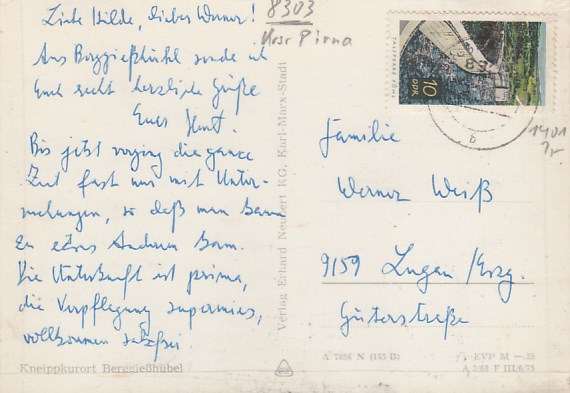 Liebe Hilde, lieber Werner!
Aus Berggießhübel sende ich
Euch recht herzliche Grüße
Euer
Bis jetzt verging die ganze
Zeit fast nur mit Unter-
suchungen, so daß man kaum
zu etwas Anderem kam.
Die Unterkunft ist prima,
die Verpflegung supermies,
vollkommen salzfrei.
Kneippkurort Berggießhübel
Verlag Erhard Neubert KG, Karl-Marx-Stadt
8303
Krsr Pirna
10
DDR
b
1401
Familie
Werner Weiß
9159 Lugau/Erzg.
Güterstraße
A 7086 N (155 B)
EVP M —.25
A 2/68 F III/6/75